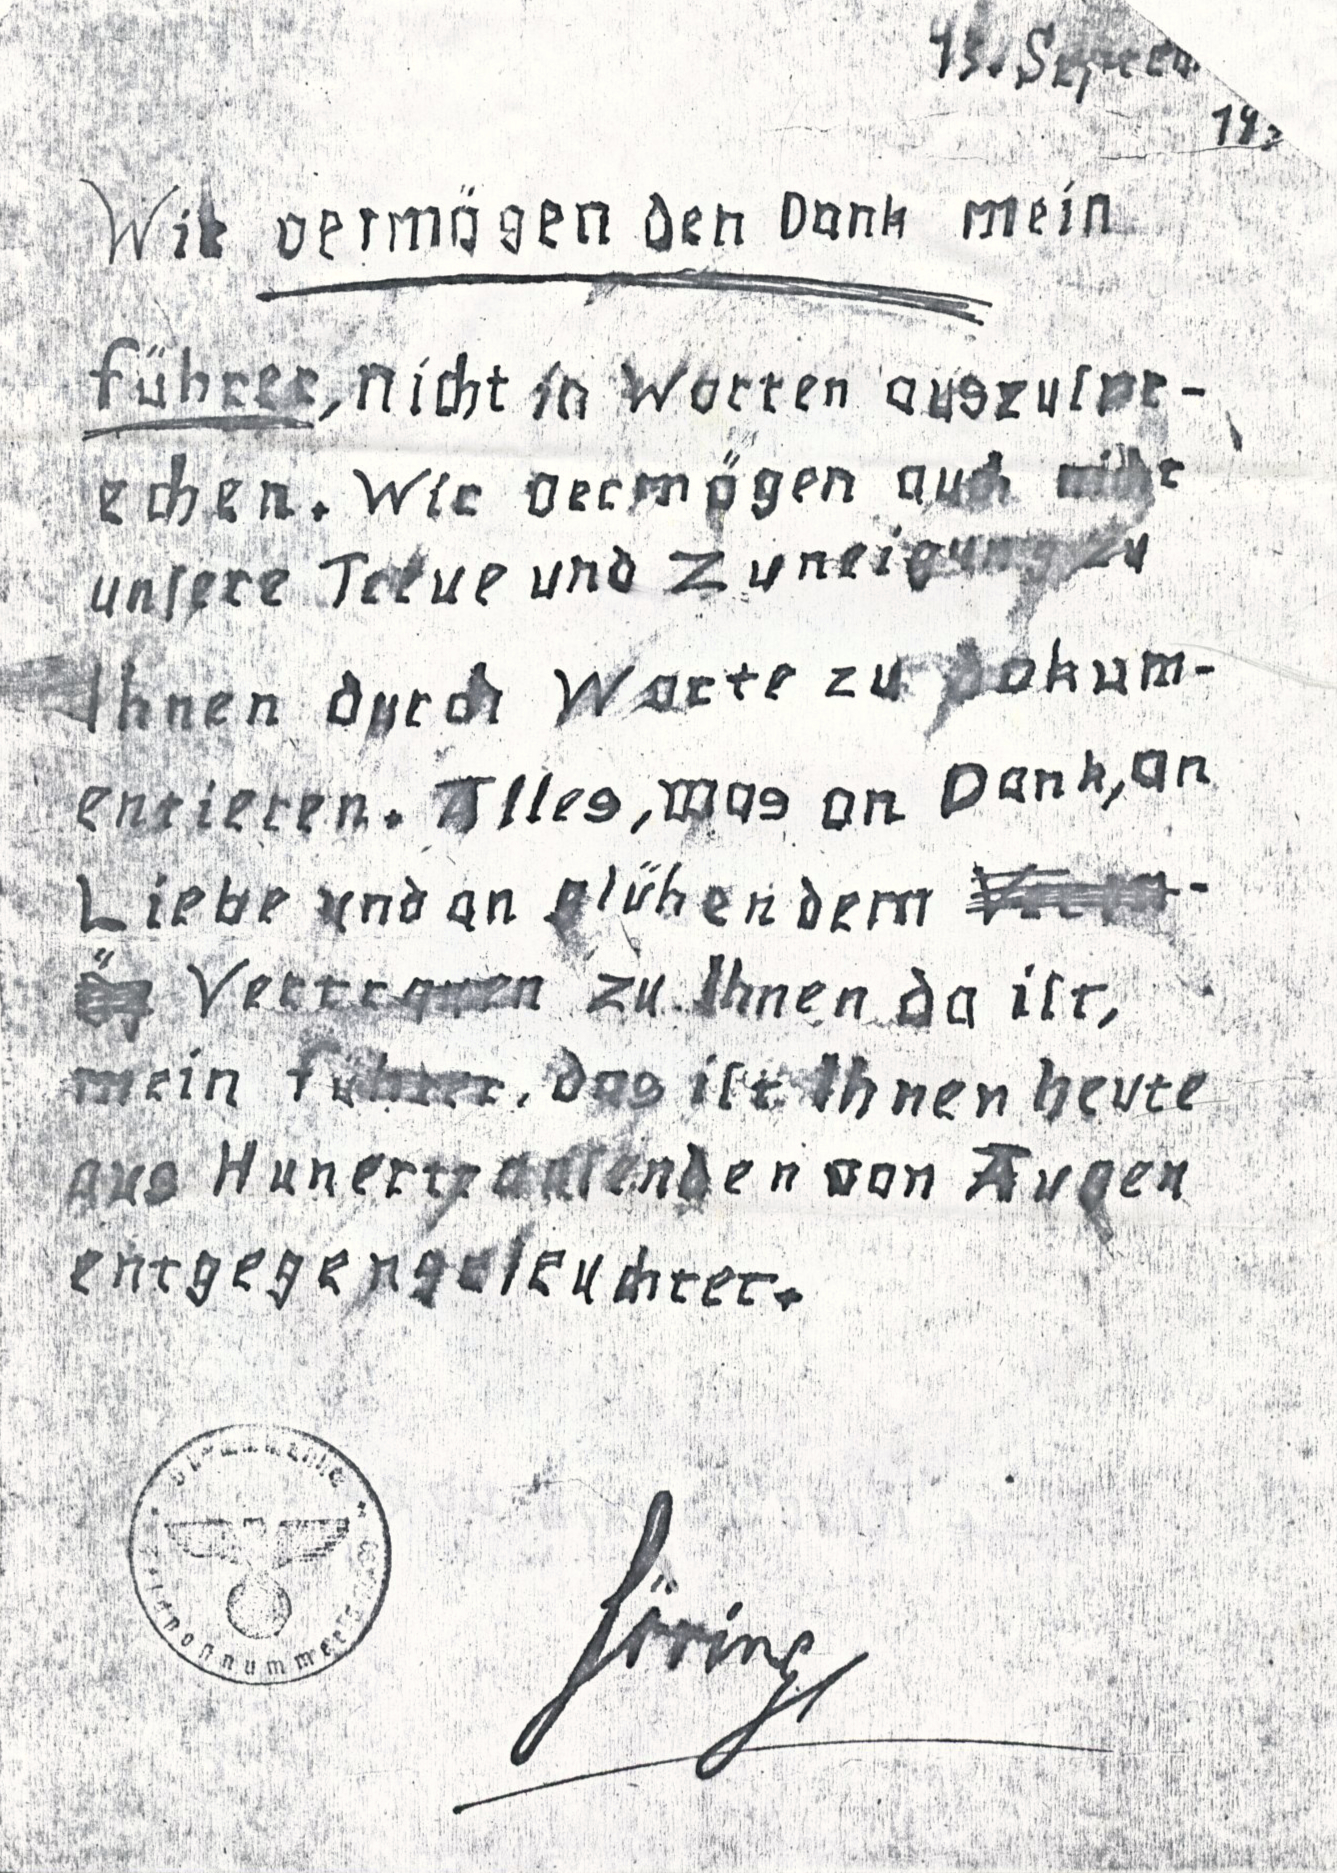 13. Septem
193
Wir vermögen den Dank mein
Führer, nicht in Worten auszuspr-
echen. Wir vermögen auch nicht
unsere Treue und Zuneigung zu
Ihnen durch Worte zu dokum-
entieren. Alles, was an Dank, an
Liebe und an glühendem
Vertrauen zu Ihnen da ist,
mein Führer, das ist Ihnen heute
aus Hunertzausenden von Augen
entgegengeleuchtet.
Göring